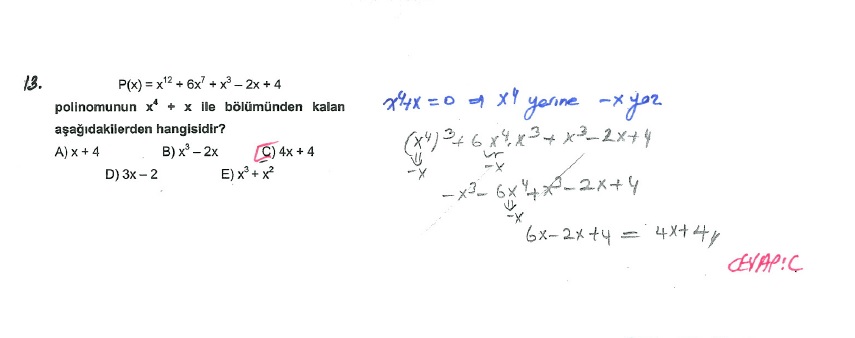 13.
P(x) = x¹² + 6x⁷ + x³ – 2x + 4
polinomunun x⁴ + x ile bölümünden kalan
aşağıdakilerden hangisidir?
A) x + 4 B) x³ – 2x C) 4x + 4
D) 3x – 2 E) x³ + x²
x⁴+x = 0 ⇒ x⁴ yerine -x yaz
(x⁴)³ + 6 x⁴.x³ + x³ - 2x + 4
⇓ -x -x
-x³ - 6x⁴ + x³ - 2x + 4
⇓ -x
6x - 2x + 4 = 4x + 4
CEVAP:C